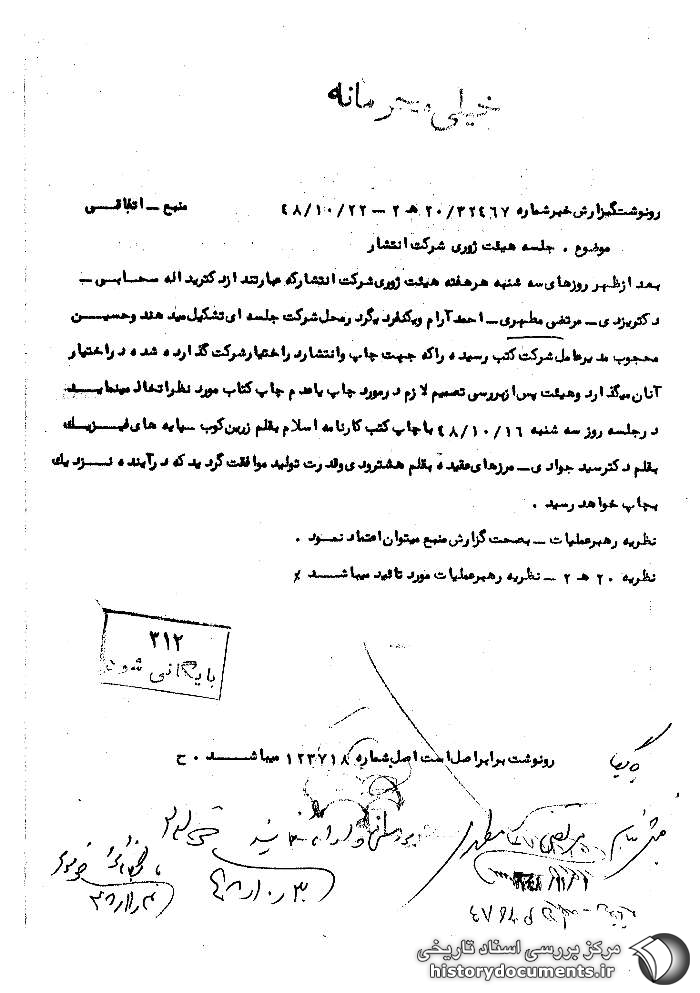 خیلی محرمانه
رونوشت گزارش خبر شماره ۲۰/۳۲۴۶۷ هـ ۲ – ۴۸/۱۰/۲۲ منبع – اتفاقی
موضوع . جلسه هیئت ژوری شرکت انتشار
بعد از ظهر روزهای سه شنبه هر هفته هیئت ژوری شرکت انتشار که عبارتند از دکتر ید اله سحابی –
دکتر یزدی – مرتضی مطهری – احمد آرام و یکنفر دیگر در محل شرکت جلسه ای تشکیل میدهند و حسین
محجوب مدیر عامل شرکت کتب رسیده را که جهت چاپ و انتشار در اختیار شرکت گذارده شده در اختیار
آنان میگذارد و هیئت پس از بررسی تصمیم لازم در مورد چاپ یا عدم چاپ کتاب مورد نظر اتخاذ مینماید
در جلسه روز سه شنبه ۴۸/۱۰/۱۶ با چاپ کتب کارنامه اسلام بقلم زرین کوب سپایه های فیزیک
بقلم دکتر سید جوادی – مرزهای عقیده بقلم هشترودی و قدرت تولید موافقت گردید که در آینده نزدیک
بچاپ خواهد رسید .
نظریه رهبر عملیات – بصحت گزارش منبع میتوان اعتماد نمود .
نظریه ۲۰ هـ ۲ – نظریه رهبر عملیات مورد تائید میباشد
۳۱۲
بایگانی شود
رونوشت برابر اصل است اصل بشماره ۱۲۳۷۱۸ میباشد . ح
مرتضی مطهری
مرکز بررسی اسناد تاریخی
historydocuments.ir